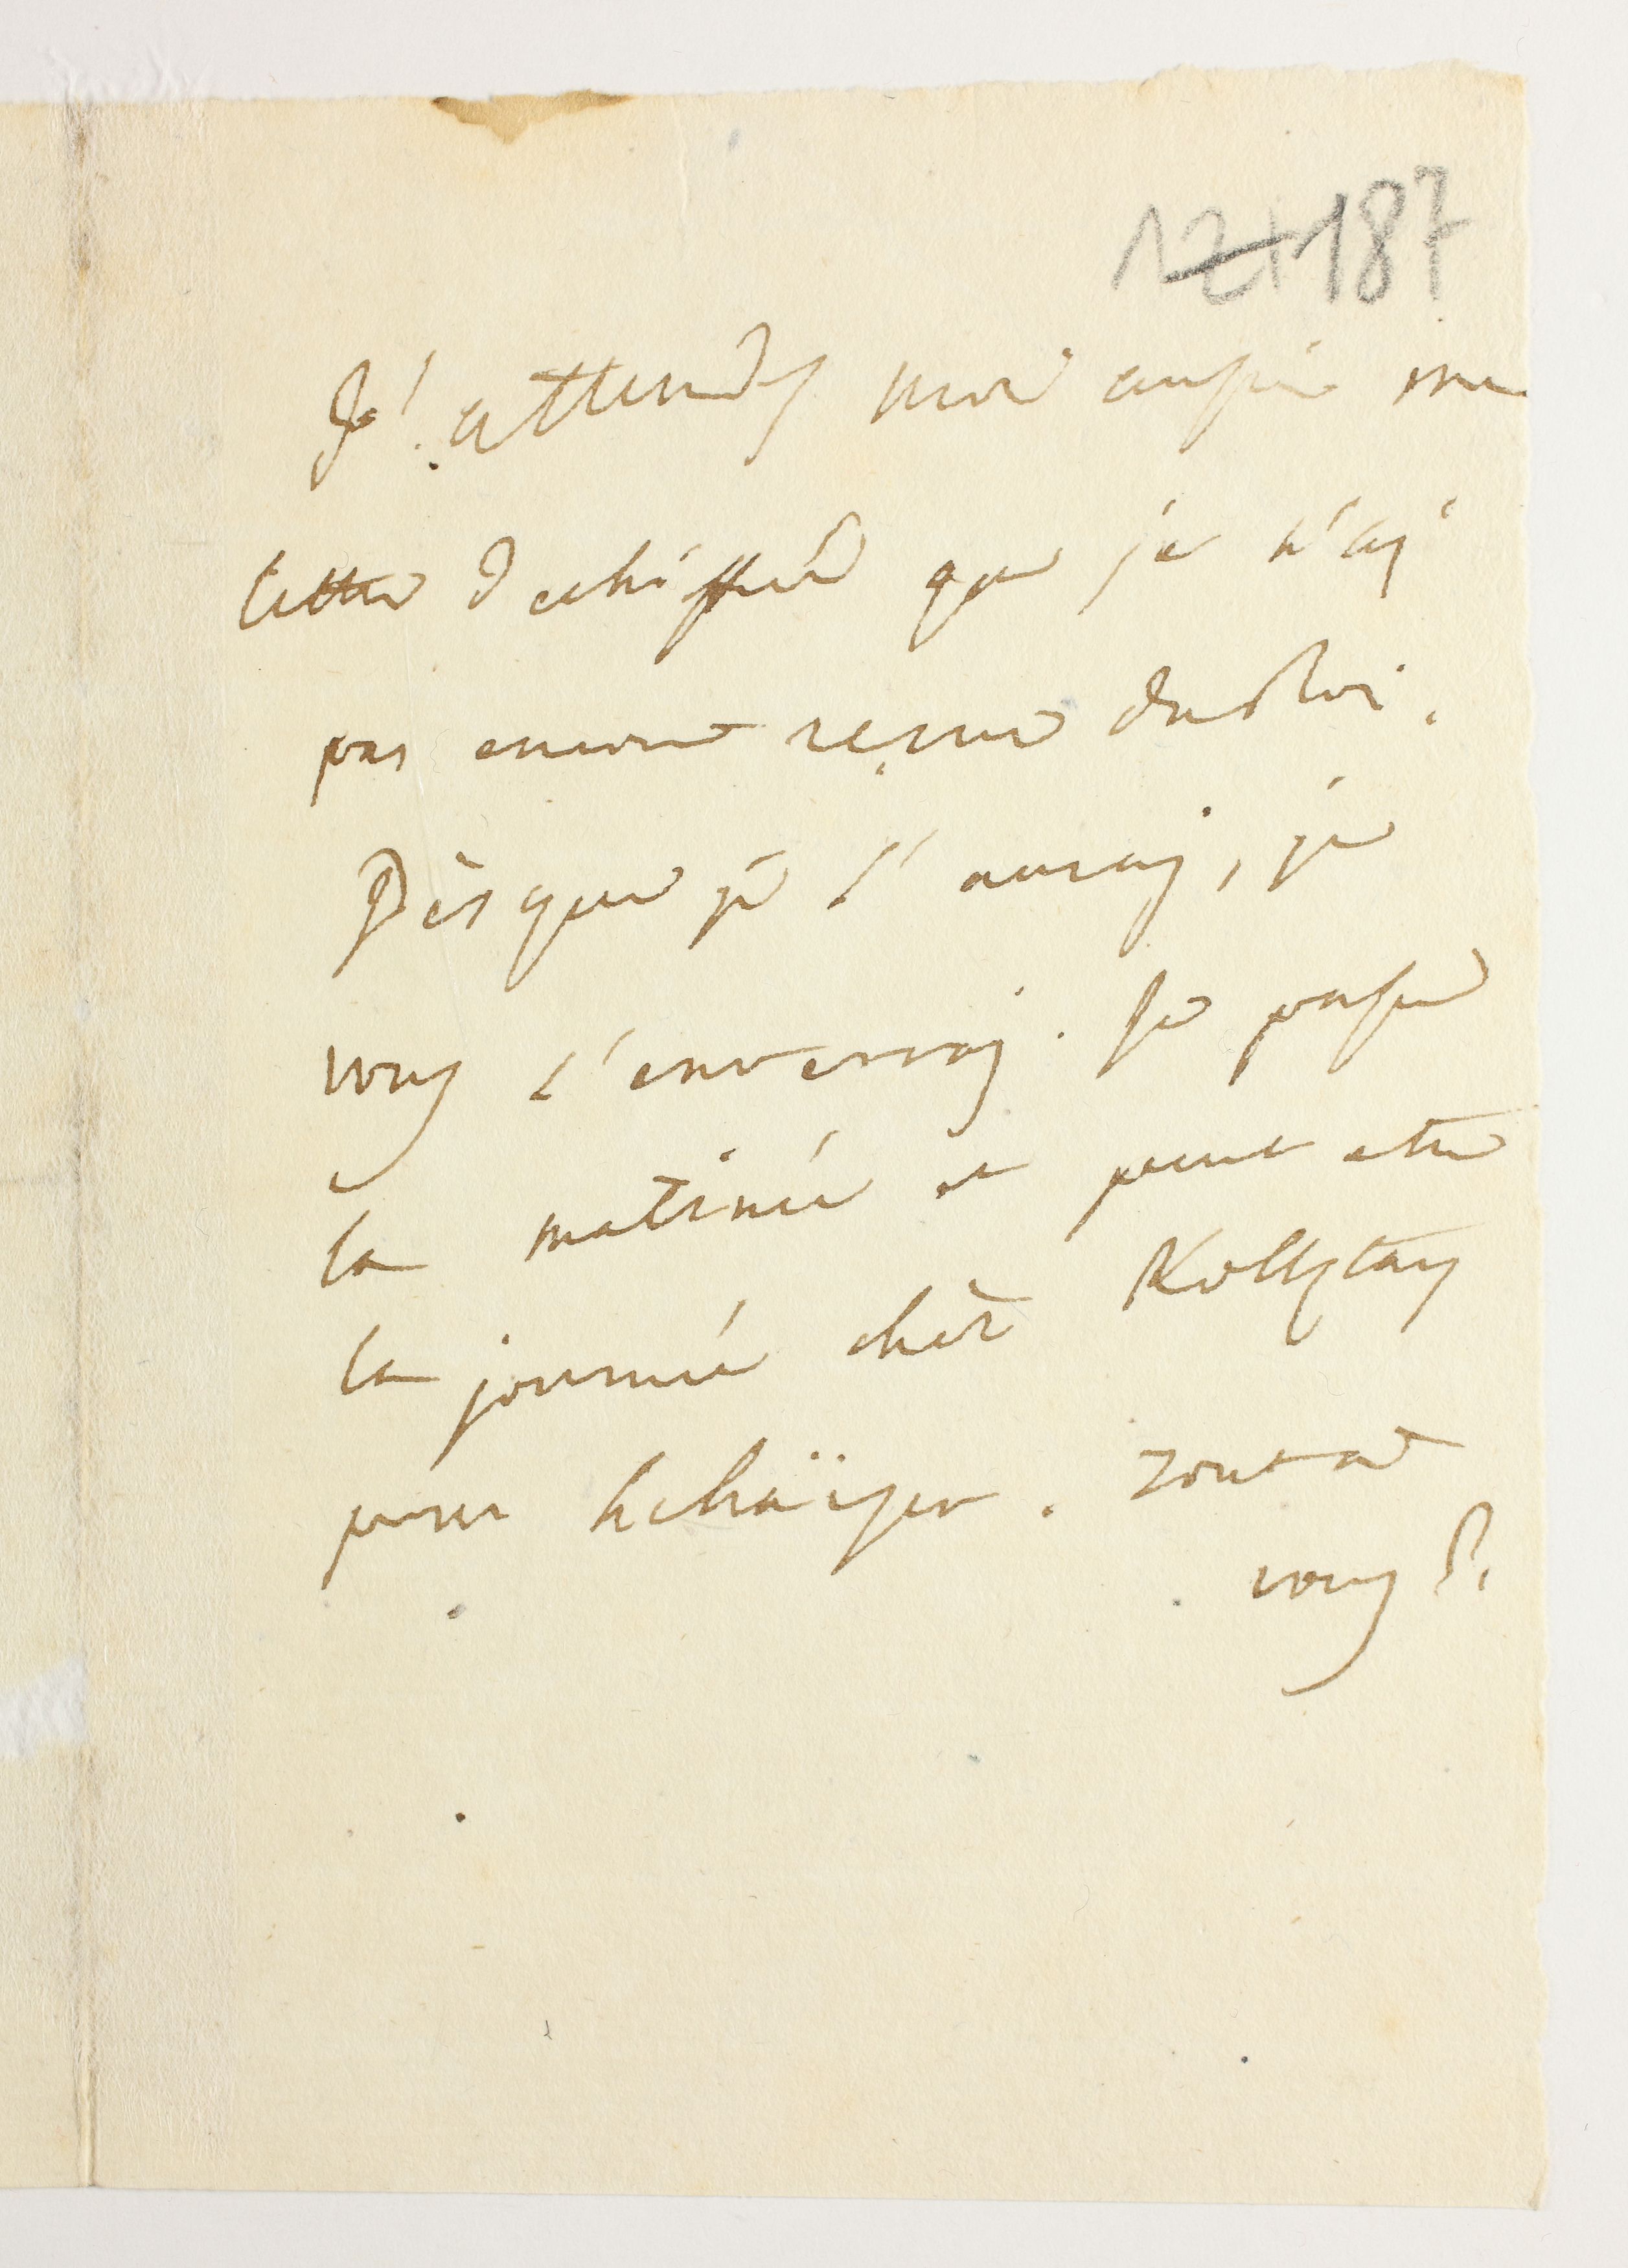 121 187
J'attends moi aussi une
lettre dechiffrée que je n'ai
pas encore reçue du Roi.
Dès que je l'auray, je
vous l'enverray. Je passe
la matinée et peut etre
la journée chèz Kollontay
pour . tout a
vous